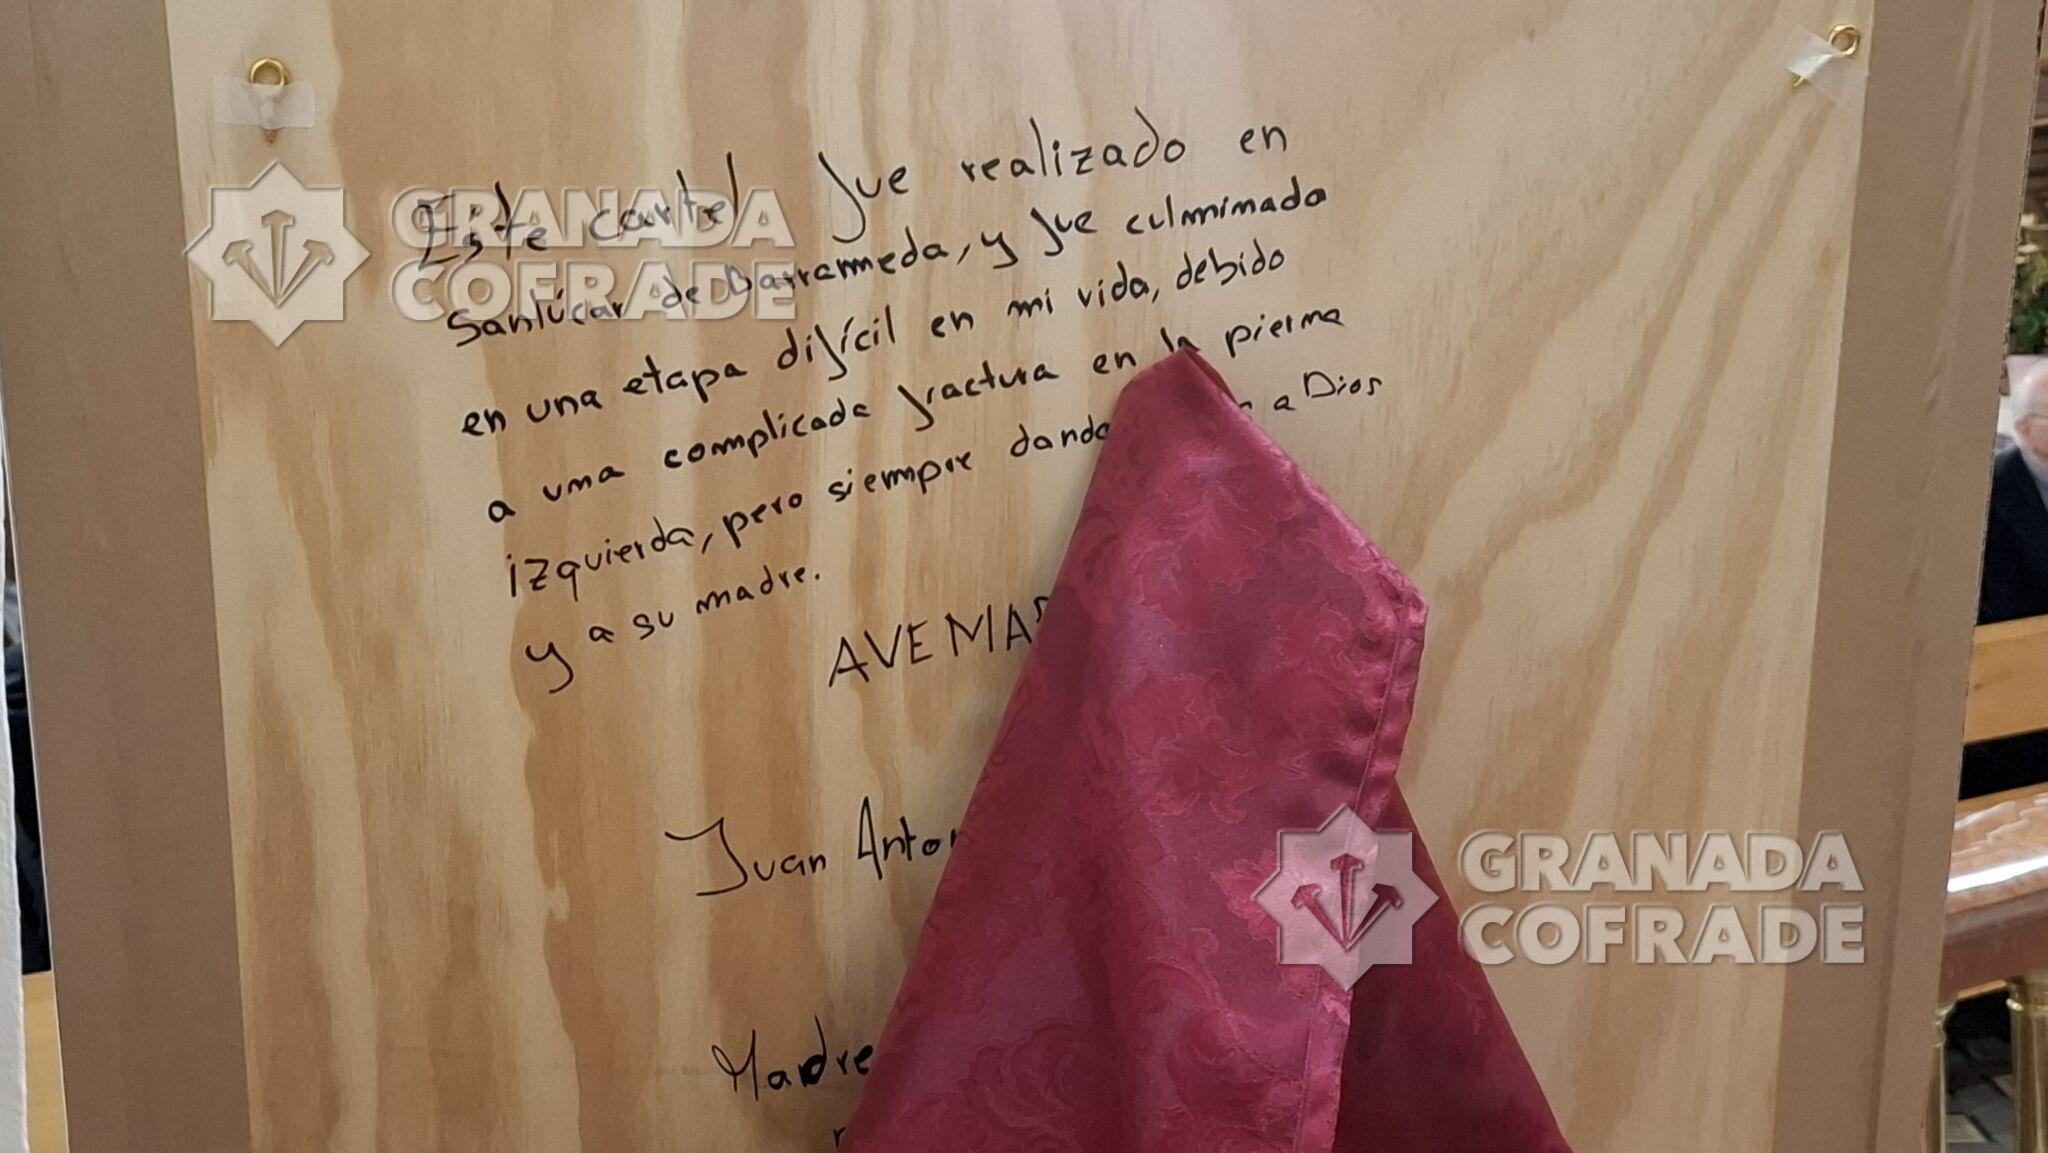 Este cartel fue realizado en
Sanlúcar de Barrameda, y fue culminado
en una etapa difícil en mi vida, debido
a una complicada fractura en la pierna
izquierda, pero siempre dando a Dios
y a su madre.
AVE MAR
Juan Anton
Madre
GRANADA
COFRADE
GRANADA
COFRADE